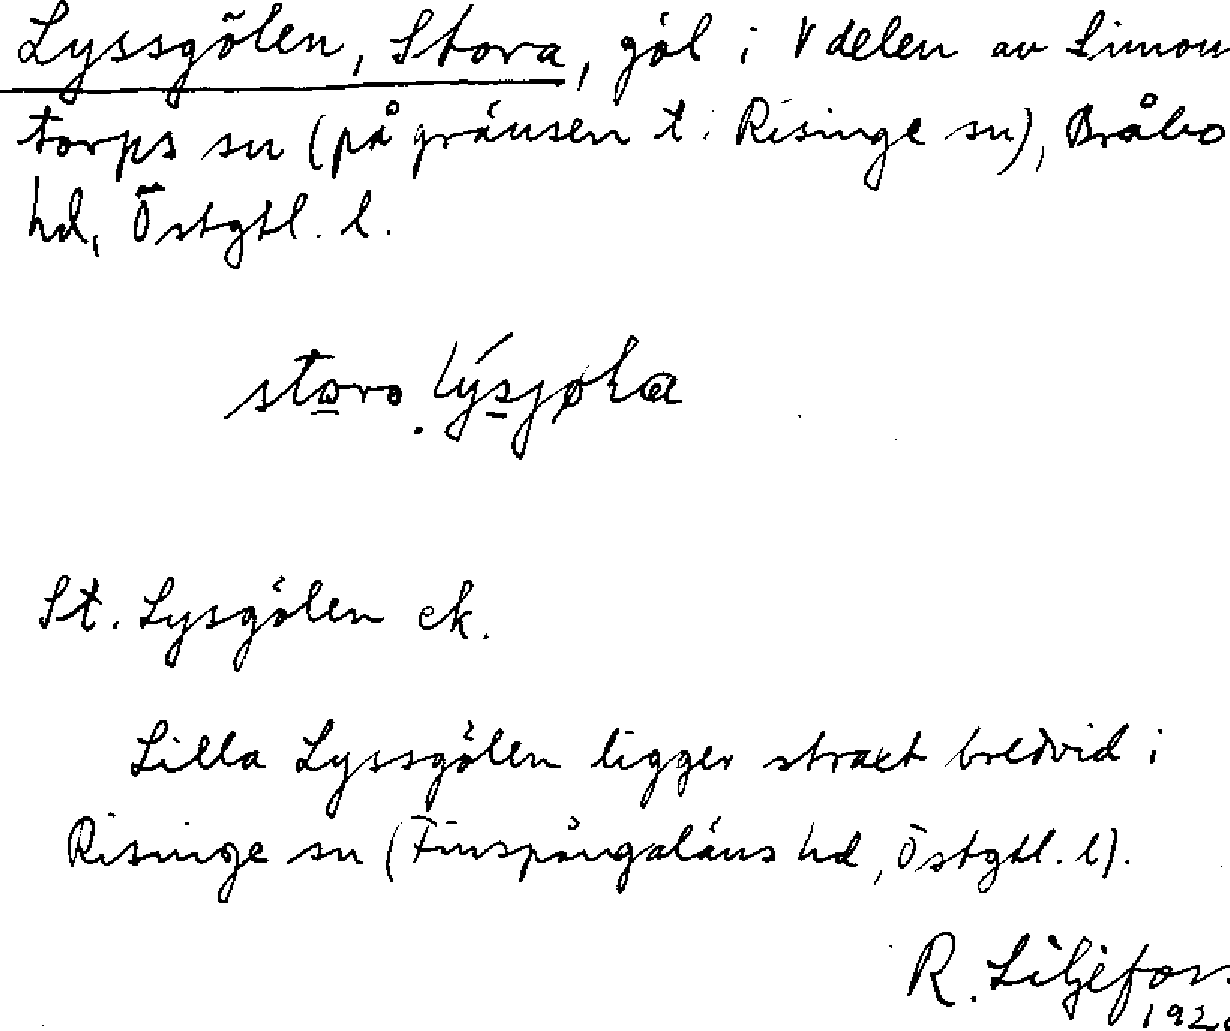 Lyssgölen, Stora, göl i V delen av Simon
torps sn (på gränsen t. Risinge sn), Bråbo
hd, Östgtl. l.
stora lýsjøla
St. Lysgölen ek.
Lilla Lyssgölen ligger straxt bredvid i
Risinge sn (Finspångaläns hd, Östgtl. l).
R. Liljefors